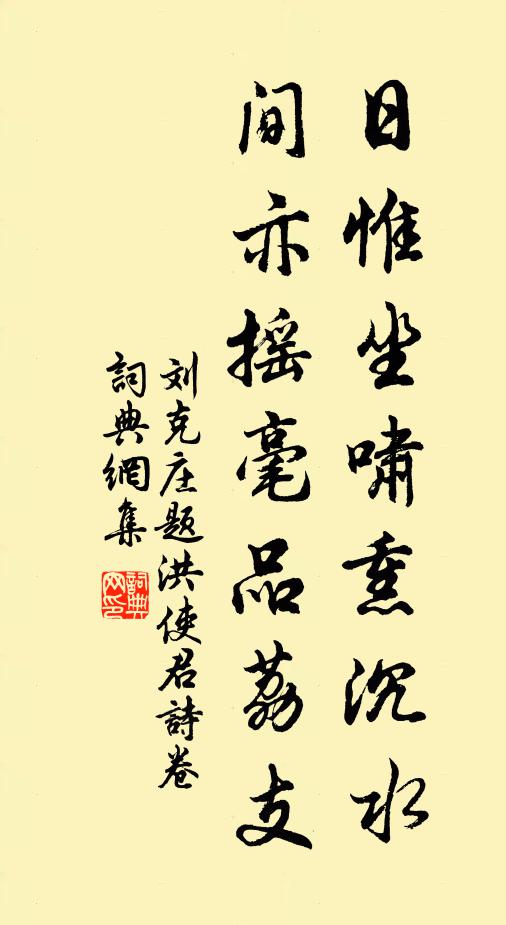 日惟坐啸熏沉水
间亦摇毫品荔支
刘克庄题洪使君詩卷
詞典網集
詞典网印